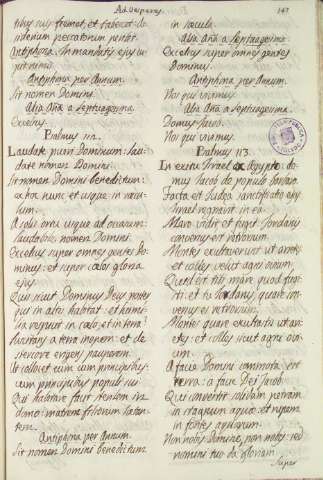 Ad Vesperas.
147
suis fremet, et tabescet: de-
siderium peccatorum peribit.
Antiphona. In mandatis ejus cu-
pit nimis.
Antiphona per Annum.
Sit nomen Domini.
Alia Aña a Septuagesima
Excelsus.
Psalmus 112.
Laudate pueri Dominum: lau-
date nomen Domini.
Sit nomen Domini benedictum:
ex hoc nunc et usque in sæcu-
lum.
A solis ortu usque ad occasum:
laudabile nomen Domini.
Excelsus super omnes gentes Do-
minus: et super cælos gloria
ejus.
Quis sicut Dominus Deus noster
qui in altis habitat: et humi-
lia respicit in cælo, et in terra?
Suscitans a terra inopem: et de
stercore erigens pauperem.
Ut collocet eum cum principibus:
cum principibus populi sui.
Qui habitare facit sterilem in
domo: matrem filiorum lætan-
tem.
Antiphona per Annum.
Sit nomen Domini benedictum
in sæcula.
Alia Aña a Septuagesima.
Excelsus super omnes gentes
Dominus.
Antiphona per Annum.
Nos qui vivimus.
Alia Aña a Septuagesima.
Domus Jacob.
Nos qui vivimus.
Psalmus 113.
In exitu Israel de Ægypto: do-
mus Jacob de populo barbaro
Facta est Judæa sanctificatio ejus
Israel potestas in ea.
Mare vidit et fugit: Jordanis
conversus est retrorsum.
Montes exultaverunt ut arietes
et colles sicut agni ovium.
Quid est tibi mare quod fugis-
ti: et tu Jordanis, quare con-
versus es retrorsum.
Montes quare exultastis ut ari-
etes: et colles sicut agni ovi-
um.
A facie Domini commota est
terra: a facie Dei Jacob.
Qui convertit solidam petram
in stagnum aquæ: et rupem
in fontes aquarum.
Non nobis Domine, non nobis: sed
nomini tuo da gloriam.
Super